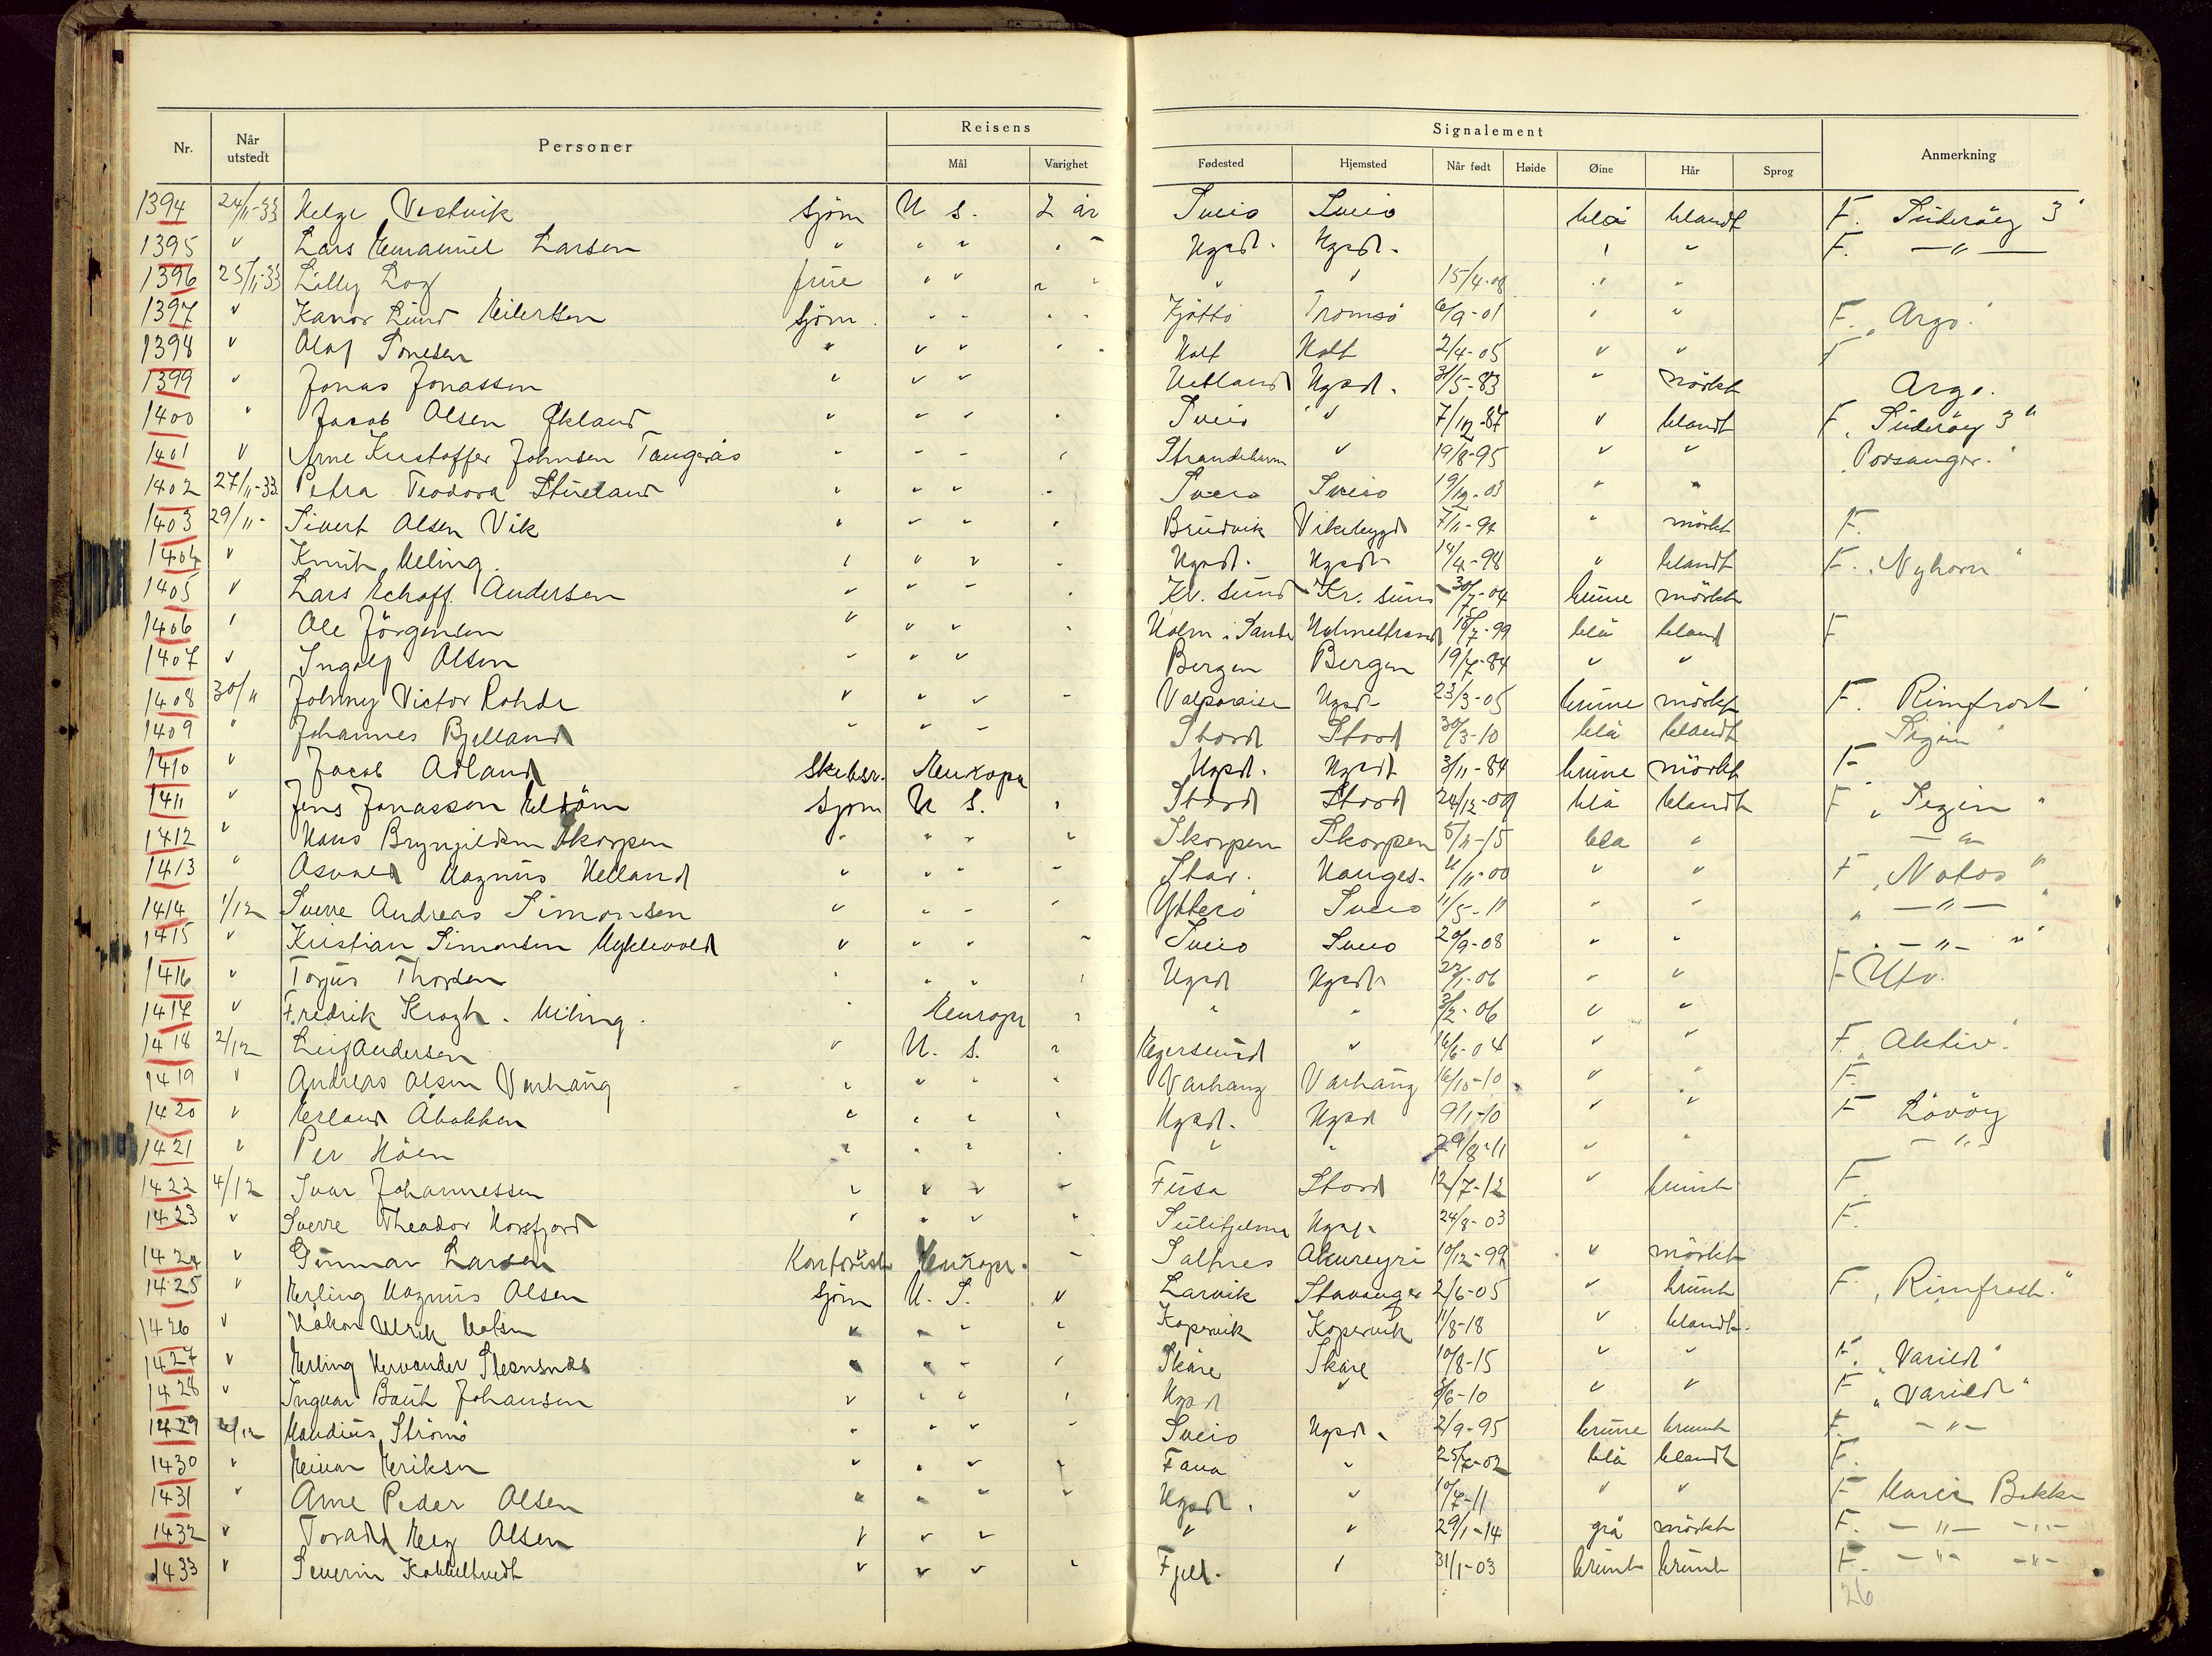 Reisens
Signalement
Nr. Når utstedt Personer Mål Varighet Fødested Hjemsted Når født Høide Øine Hår Sprog Anmerkning
1394 24/11-33 Helge Vestvik sjøm U S. 2 år Sveio Sveio blå blandt F. Süderöy 3"
1395 " Lars Emanuel Larsen " " " " " Hgsd. Hgsd. " " F. — " —
1396 25/11-33 Lilly Log frue " " " " " " 15/4-08 " "
1397 " Kanor Lund Eilertsen sjøm. " " " " Kjøtta Tromsö 6/9-01 " " F. "Argo."
1398 " Olaf Tonesen " " " " " Holt Holt 2/4-05 " " F
1399 " Jonas Jonassen " " " Uetland Hgsd. 31/5-83 " mörkt Argo.
1400 " Jacob Olsen Økland " " " " Sveio " 7/12-87 " blandt F. "Süderöy 3"
1401 " Arne Kristoffer Johnsen Tangerås " " " " Strandebarm " 19/8-95 " " "Porsanger."
1402 27/11-33. Petra Teodora Stueland " " " " Sveio Sveio 19/12-03 " "
1403 29/11- Sivert Olsen Vik " " " " Bruvik Vikebygd 7/11-94 " mörkt F.
1404 " Knut Meling. " " " " Hgsd. Hgsd. 14/4-98 " blandt F. "Nyhorn"
1405 " Lars Echoff. Andersen " " " " Kr. sund Kr. sund 30/7-04 brune mörkt
1406 " Ole Jörgensen " " " " Holm i Sande Holmestrand 15/7-99 blå bland F
1407 " Ingolf Olsen " " " Bergen Bergen 19/7-84 " "
1408 30/11 Johnny Victor Rohde " " " " Valparaiso Hgsd. 23/3-05 brune mörkt F. Rimfrost
1409 " Johannes Bjelland " " " Stord Stord 30/3-10 blå blandt Segin"
1410 " Jacob Adland skibsr. Europa Hgsd. Hgsd. 3/11-84 brune mörkt F
1411 " Jens Jonassen Eldöm sjøm U S. " Stord Stord 24/12-09 blå blandt F "Segin"
1412 " Hans Brynjildsen Skorpen " " " " Skorpen Skorpen 5/11-15 blå " — " —
1413 " Osvald Magnus Helland " " " " Stav. Hauges. 4/11-00 " " F "Notos"
1414 1/12 Sverre Andreas Simonsen " " " " Ytterö Sveio 11/5-11 " " " — " — "
1415 " Kristian Simonsen Myklevold " " " " Sveio Sveio 20/9-08 " " " — " — "
1416 " Torjus Thorsen " " " " Hgsd Hgsd. 22/1-06 " " F Utv.
1417 " Fredrik Krogh. Meling. " Europa " " " 3/2-06 " "
1418 2/12 Leif Andersen " U. S. " Egersund " 16/6-04 " " F. "Aktiv."
1419 " Andreas Olsen Varhaug " " " " Varhaug Varhaug 16/10-10 " " F.
1420 " Erland Åbakken " " " " Hgsd. Hgsd 9/1-10 " " F Lövöy
1421 " Per Höen " " " " " " 29/8-11 " " — " —
1422 4/12 Ivar Johannessen " " " " Fusa Stord 12/7-12 " brunt F.
1423 " Sverre Theodor Horsfjord " " " " Sulitjelma Hgsd. 24/8-03 F.
1424 " Gunnar Larsen Kontorist Europa. " Saltnes Akureyri 10/12-99 " mörkt
1425 " Erling Magnus Olsen sjøm U. S. " Larvik Stavanger 2/6-05 " brunt F "Rimfrost."
1426 " Håkon Ulrik Matsen " " " " Kopervik Kopervik 1/8-18 " blandt.
1427 " Erling Hervander Stensnæs " " " " Skåre Skåre 10/8-15 " " F. "Varild"
1428 " Ingvar Baut Johansen " " " " Hgsd " 8/6-10 " " F "Varild"
1429 6/12 Maudius Strömö " " " " Sveio Hgsd. 2/9-95 brune brunt F. — " —
1430 " Einar Eriksen " " " " Fana " 25/7-02 blå blandt F.
1431 " Arne Peder Olsen " " " " Hgsd. " 10/7-11 " " F Marie Bakke
1432 " Torald Meg Olsen " " " " " 29/1-14 grå mörkt F. — " — — " —
1433 " Severin Kobbeltvedt " " " " Fjell. " 31/1-03 brunt brunt F. — " — — " —
26